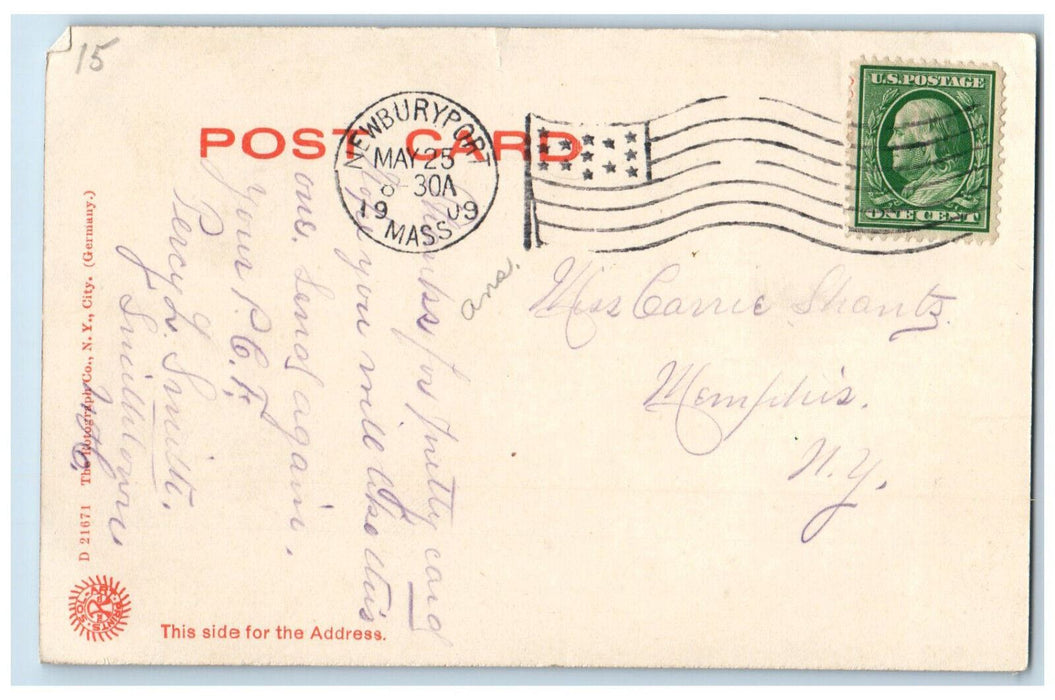 15
POST CARD
NEWBURYPORT
MAY 25
8 30A
1909
MASS
U.S. POSTAGE
ONE CENT
Thanks for pretty card
hope you will like this
one. Send again.
Your P.C.F.
Percy L. Smith.
Smithtown,
N.H.
ans.
Miss Carrie Shantz.
Memphis.
N.Y.
D 21671 The Rotograph Co., N.Y., City. (Germany.)
This side for the Address.